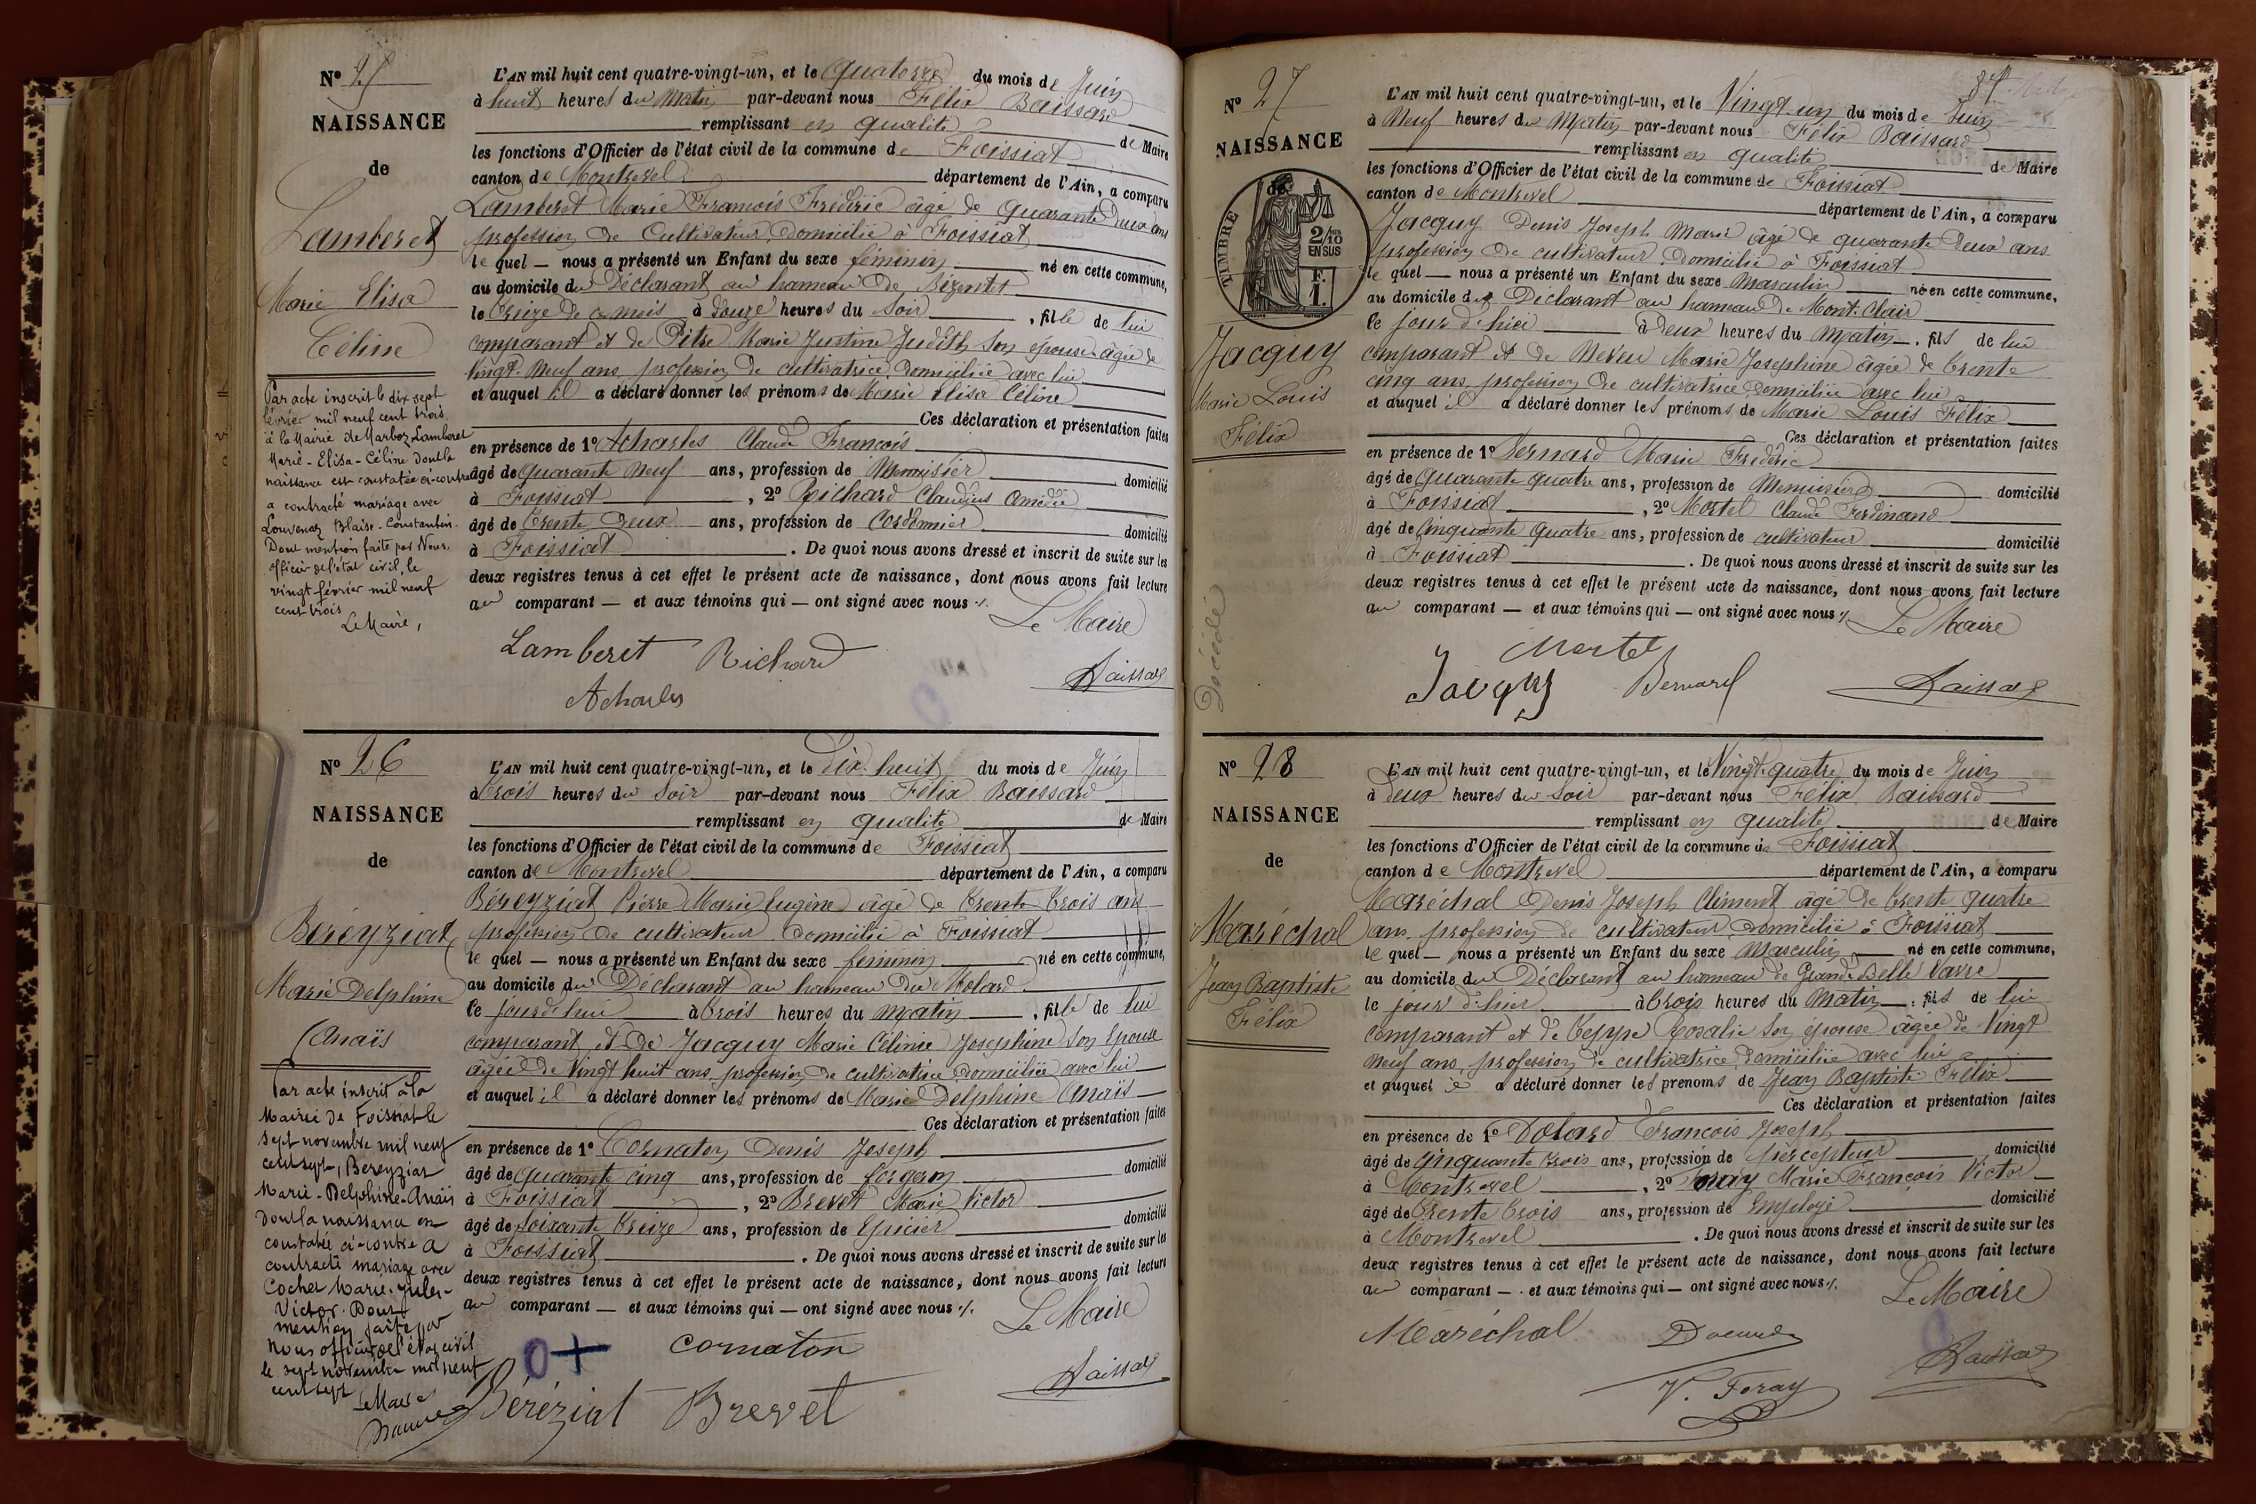 Nº 25
NAISSANCE
de
Lamberet
Marie Elisa
Céline
Par acte inscrit le dix sept
février mil neuf cent trois
à la Mairie de Marboz Lamberet
Marie-Elisa-Céline dont la
naissance est constatée ci-contre
a contracté mariage avec
Blaise-Constantin.
Dont mention faite par Nous,
officier de l'état civil, le
vingt février mil neuf
cent trois
Le Maire,
L'AN mil huit cent quatre-vingt-un, et le quatorze du mois de Juin
à huit heures du Matin par-devant nous Félix Baissard
remplissant en qualité de Maire
les fonctions d'Officier de l'état civil de la commune de Foissiat
canton de Montrevel département de l'Ain, a comparu
Lamberet Marie François Frédéric âgé de quarante deux ans
profession de Cultivateur, domicilié à Foissiat
le quel — nous a présenté un Enfant du sexe féminin né en cette commune,
au domicile du Déclarant au hameau de Bezentet
le treize de ce mois à douze heures du soir, fille de lui
comparant et de Pitre Marie Justine Judith son épouse âgée de
vingt-neuf ans, profession de cultivatrice, domiciliée avec lui
et auquel il a déclaré donner les prénoms de Marie Elisa Céline
Ces déclaration et présentation faites
en présence de 1º Acharles Claude François
âgé de quarante neuf ans, profession de Menuisier domicilié
à Foissiat, 2º Richard Claudius Amédée
âgé de trente deux ans, profession de Cordonnier domicilié
à Foissiat. De quoi nous avons dressé et inscrit de suite sur les
deux registres tenus à cet effet le présent acte de naissance, dont nous avons fait lecture
au comparant — et aux témoins qui — ont signé avec nous ./.
Le Maire
Lamberet Richard
Acharles
Baissard
Nº 26
NAISSANCE
de
Béréyziat
Marie Delphine
Anaïs
Par acte inscrit à la
Mairie de Foissiat le
sept novembre mil neuf
cent sept, Béreyziat
Marie-Delphine-Anaïs
dont la naissance est
constatée ci-contre a
contracté mariage avec
Cochet Marie-Jules-
Victor. Dont
mention faite par
nous officier de l'état civil
le sept novembre mil neuf
cent sept
Le Maire
L'AN mil huit cent quatre-vingt-un, et le Dix-huit du mois de Juin
à trois heures du soir par-devant nous Félix Baissard
remplissant en qualité de Maire
les fonctions d'Officier de l'état civil de la commune de Foissiat
canton de Montrevel département de l'Ain, a comparu
Béreyziat Pierre Marie Eugène âgé de trente trois ans
profession de cultivateur domicilié à Foissiat
le quel — nous a présenté un Enfant du sexe féminin né en cette commune,
au domicile du Déclarant au hameau du Molard
le jourd'hui à trois heures du matin, fille de lui
comparant et de Jacquy Marie Célinie Joséphine son épouse
âgée de vingt huit ans, profession de cultivatrice domiciliée avec lui
et auquel il a déclaré donner les prénoms de Marie Delphine Anaïs
Ces déclaration et présentation faites
en présence de 1º Cornaton Denis Joseph
âgé de quarante cinq ans, profession de forgeron domicilié
à Foissiat, 2º Brevet Marie Victor
âgé de soixante treize ans, profession de Epicier domicilié
à Foissiat. De quoi nous avons dressé et inscrit de suite sur les
deux registres tenus à cet effet le présent acte de naissance, dont nous avons fait lecture
au comparant — et aux témoins qui — ont signé avec nous ./.
Le Maire
cornaton
Béréziat Brevet
Baissard
87
Nº 27
NAISSANCE
de
TIMBRE
2/10
EN SUS
F.
1.
Jacquy
Marie Louis
Félix
Décédé
L'AN mil huit cent quatre-vingt-un, et le Vingt-un du mois de Juin
à Neuf heures du Matin par-devant nous Félix Baissard
remplissant en qualité de Maire
les fonctions d'Officier de l'état civil de la commune de Foissiat
canton de Montrevel département de l'Ain, a comparu
Jacquy Denis Joseph Marie âgé de quarante deux ans
profession de cultivateur, domicilié à Foissiat
le quel — nous a présenté un Enfant du sexe Masculin né en cette commune,
au domicile du Déclarant au hameau de Mont-Clair
le jour d'hier à deux heures du Matin, fils de lui
comparant et de Neveu Marie Joséphine âgée de trente
cinq ans, profession de cultivatrice domiciliée avec lui
et auquel il a déclaré donner les prénoms de Marie Louis Félix
Ces déclaration et présentation faites
en présence de 1º Bernard Marie Frédéric
âgé de quarante quatre ans, profession de Menuisier domicilié
à Foissiat, 2º Mortel Claude Ferdinand
âgé de cinquante quatre ans, profession de cultivateur domicilié
à Foissiat. De quoi nous avons dressé et inscrit de suite sur les
deux registres tenus à cet effet le présent acte de naissance, dont nous avons fait lecture
au comparant — et aux témoins qui — ont signé avec nous ./.
Le Maire
Mortel
Jacquy Bernard
Baissard
Nº 28
NAISSANCE
de
Maréchal
Jean Baptiste
Félix
L'AN mil huit cent quatre-vingt-un, et le Vingt-quatre du mois de Juin
à deux heures du soir par-devant nous Félix Baissard
remplissant en qualité de Maire
les fonctions d'Officier de l'état civil de la commune de Foissiat
canton de Montrevel département de l'Ain, a comparu
Maréchal Denis Joseph Clément âgé de trente quatre
ans, profession de cultivateur, domicilié à Foissiat
le quel — nous a présenté un Enfant du sexe Masculin né en cette commune,
au domicile du Déclarant au hameau de Grande Belle Vavre
le jour d'hier à trois heures du Matin, fils de lui
comparant et de Teppe Rosalie son épouse âgée de Vingt
neuf ans, profession de cultivatrice, domiciliée avec lui
et auquel il a déclaré donner les prénoms de Jean Baptiste Félix
Ces déclaration et présentation faites
en présence de 1º François Joseph
âgé de cinquante trois ans, profession de percepteur domicilié
à Montrevel, 2º Foray Marie François Victor
âgé de trente trois ans, profession de Employé domicilié
à Montrevel. De quoi nous avons dressé et inscrit de suite sur les
deux registres tenus à cet effet le présent acte de naissance, dont nous avons fait lecture
au comparant — et aux témoins qui — ont signé avec nous ./.
Le Maire
Maréchal
V. Foray
Baissard